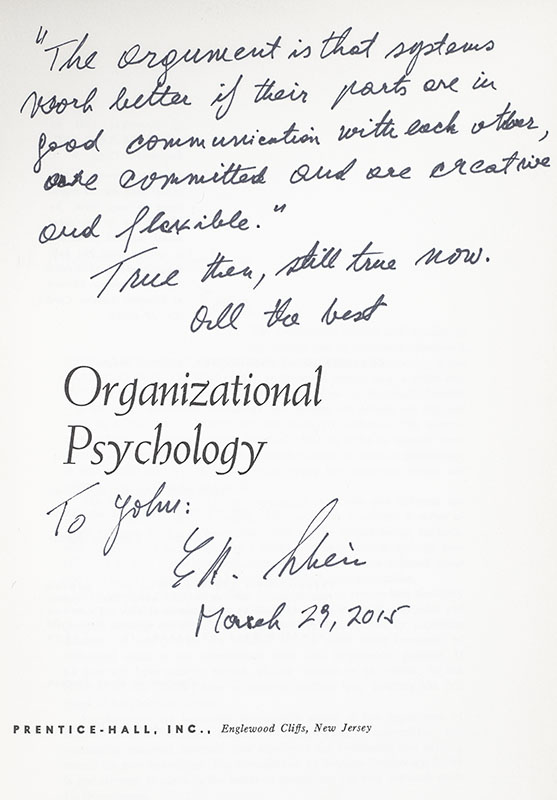 "The argument is that systems
work better if their parts are in
good communication with each other,
are committed and are creative
and flexible."
True then, still true now.
All the best
Organizational
Psychology
To John:
Ed. Schein
March 29, 2015
PRENTICE-HALL, INC., Englewood Cliffs, New Jersey